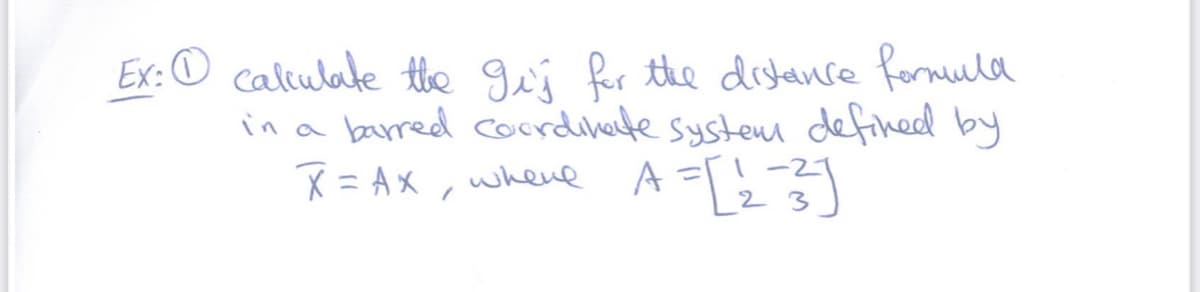 Ex: ① calculate the gij for the distance formula
in a barred coordinate system defined by
X̅ = AX , where A = [1 -2
2 3]